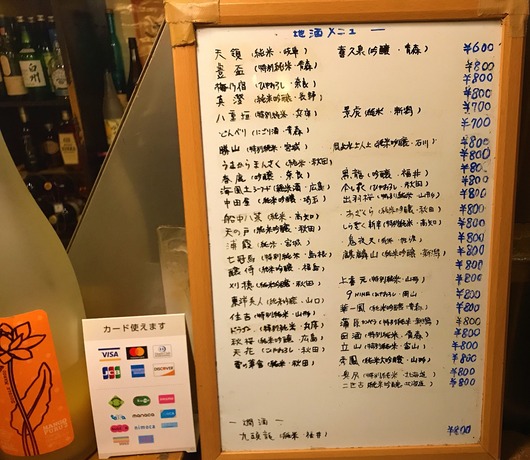 地酒メニュー
天領 (純米・岐阜) 喜久泉 (吟醸・青森) ¥600
豊盃 (特別純米・青森) ¥800
梅乃宿 (ひやおろし・奈良) ¥800
真澄 (純米吟醸・長野) ¥800
八重垣 (特別純米・兵庫) ¥700
どんぺり (にごり酒・青森) 景虎 (純米・新潟) ¥700
勝山 (特別純米・宮城) (純米吟醸・石川) ¥800
うまからまんさく (純米・秋田) ¥800
春鹿 (吟醸・奈良) 黒龍 (吟醸・福井) ¥800
海風土シーフード (純米酒・広島) (ひやおろし・秋田) ¥800
(純米吟醸・埼玉) 出羽桜 (特別純米・山形) ¥800
船中八策 (純米・高知) あざくら (純米吟醸・秋田) ¥800
天の戸 (純米吟醸・秋田) (特別純米・高知) ¥800
浦霞 (純米・宮城)
七冠馬 (特別純米・島根) 麒麟山 (純米吟醸・新潟) ¥800
(純米吟醸・福島)
刈穂 (純米吟醸・秋田) 上喜元 (特別純米・山形) ¥800
東洋美人 (純米吟醸・山口) 9NINE (ひやおろし・岡山) ¥800
住吉 (特別純米・山形) ¥800
(特別純米・兵庫) (特別純米・新潟) ¥800
(純米吟醸・広島) 田酒 (特別純米・青森) ¥800
天花 (ひやおろし・秋田) 立山 (特別純米・富山) ¥800
雪の茅舎 (純米・秋田) 秀鳳 (純米大吟醸・山形) ¥800
(特別純米・北海道) ¥800
二世古 (純米吟醸・北海道) ¥800
ー燗酒ー
九頭龍 (純米・福井) ¥800
カード使えます
VISA
JCB
DISCOVER
manaca
nimoca